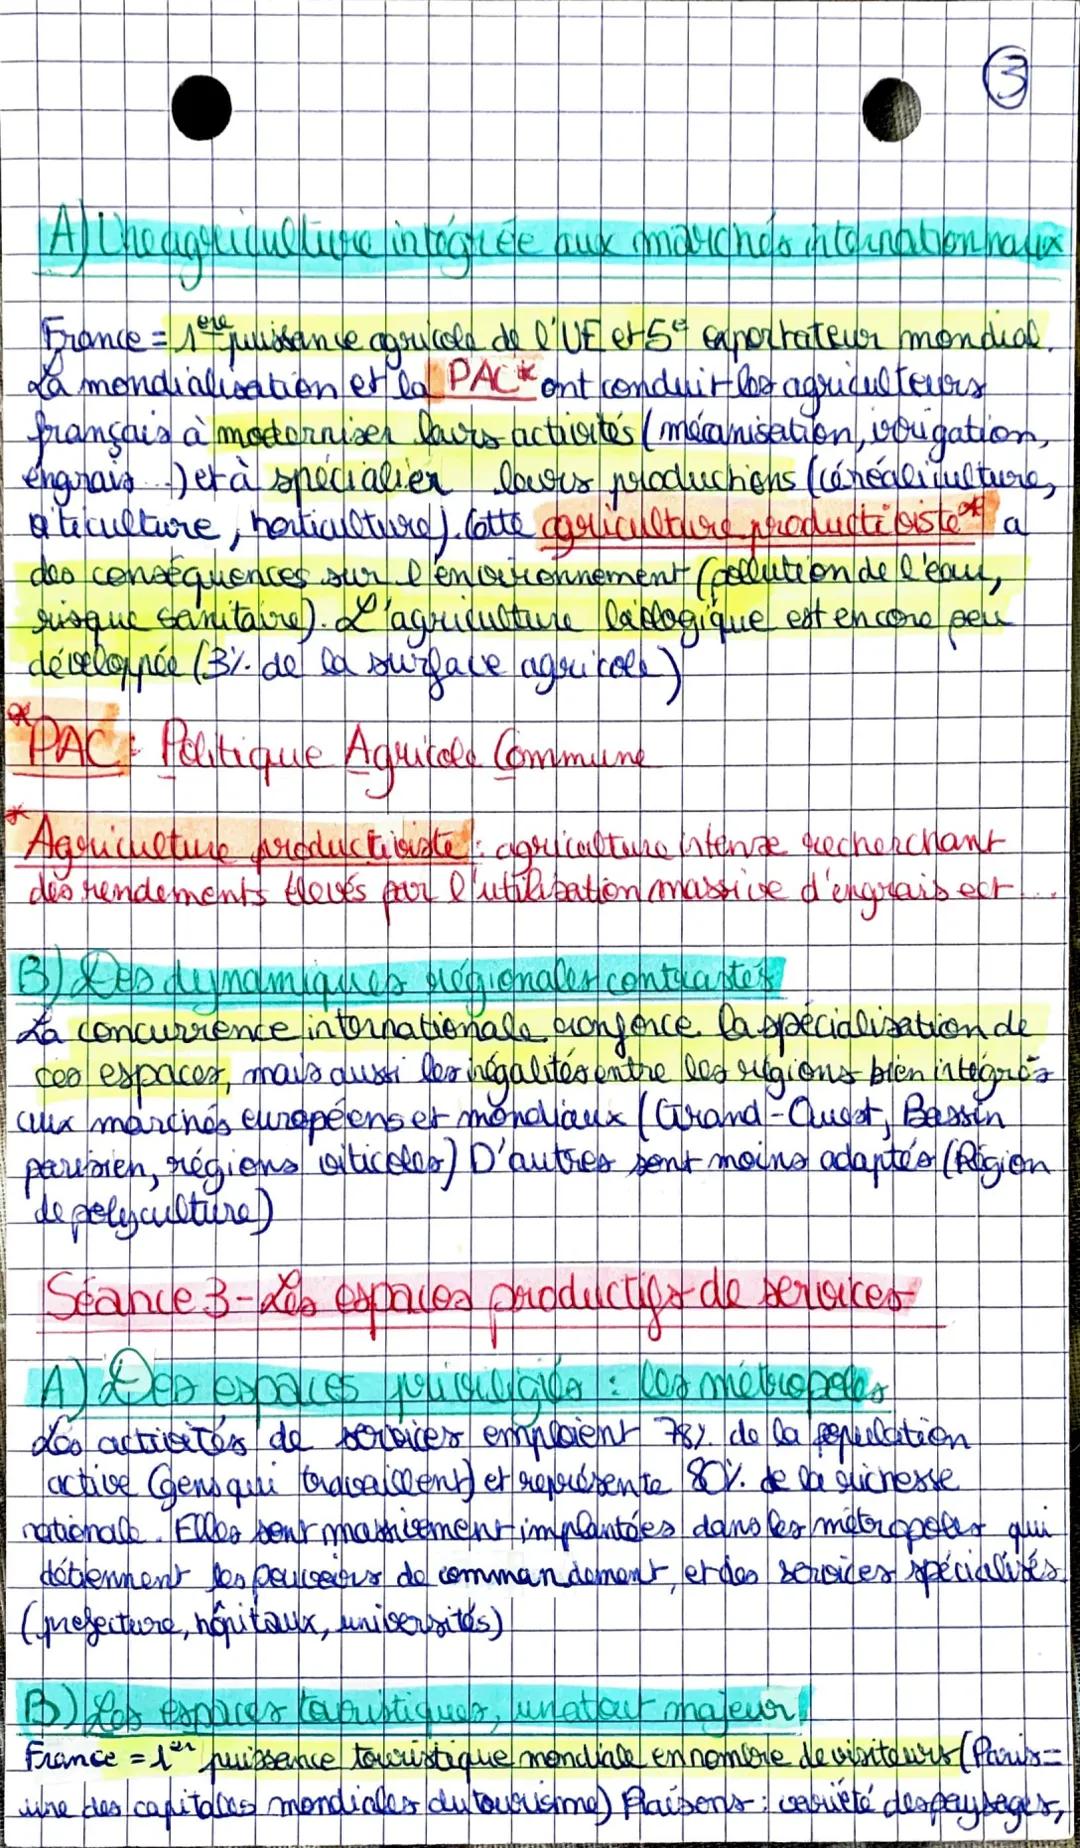 3
A) Une agriculture intégrée aux marchés internationnaux
France = 1ère puissance agricole de l'UE et 5e exportateur mondial.
La mondialisation et la PAC* ont conduit les agriculteurs
français à moderniser leurs activités (mécanisation, irrigation,
engrais...) et à spécialier leurs productions (céréaliculture,
viticulture, horticulture). Cette agriculture productiviste* a
des conséquences sur l'environnement (pollution de l'eau,
risque sanitaire). L'agriculture biologique est encore peu
développée (3% de la surface agricole)
*PAC : Politique Agricole Commune
*Agriculture productiviste : agriculture intense recherchant
des rendements élevés par l'utilisation massive d'engrais ect ...
B) Des dynamiques régionales contrastés
La concurrence internationale renforce la spécialisation de
ces espaces, mais aussi les inégalités entre les régions bien intégrés
aux marchés européens et mondiaux (Grand-Ouest, Bassin
parisien, régions viticoles) D'autres sont moins adaptés (Région
de polyculture)
Séance 3 - Les espaces productifs de services
A) Des espaces privilégiés : les métropoles
Les activités de services emploient 78% de la population
active (gens qui travaillent) et représente 80% de la richesse
nationale. Elles sont massivement implantées dans les métropoles qui
détiennent les pouvoirs de commandement, et des services spécialisés
(prefecture, hôpitaux, universités)
B) Les espaces touristiques, un atout majeur
France = 1er puissance touristique mondiale en nombre de visiteurs (Paris =
une des capitales mondiales du tourisme) Raisons : variété des paysages,